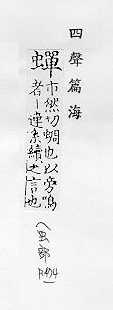 四聲篇海
蟬市然切蜩也以旁鳴
者一連系締之言也
(虫部
P.494